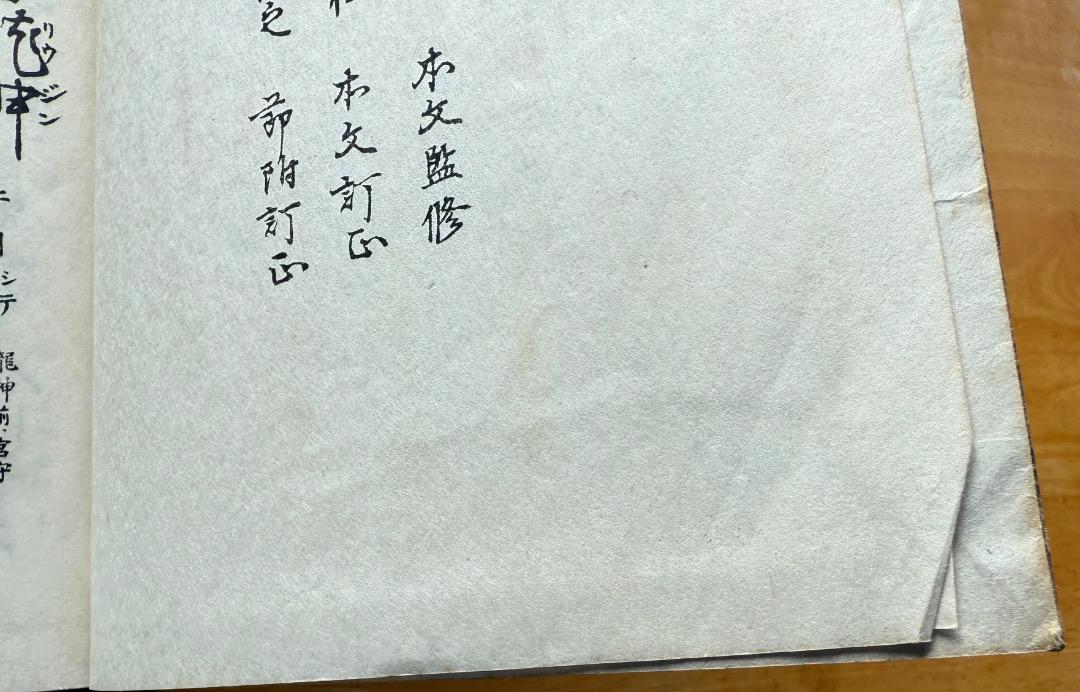 本文監修
本文訂正
節附訂正
リウジン
シテ 龍神 前・宮守